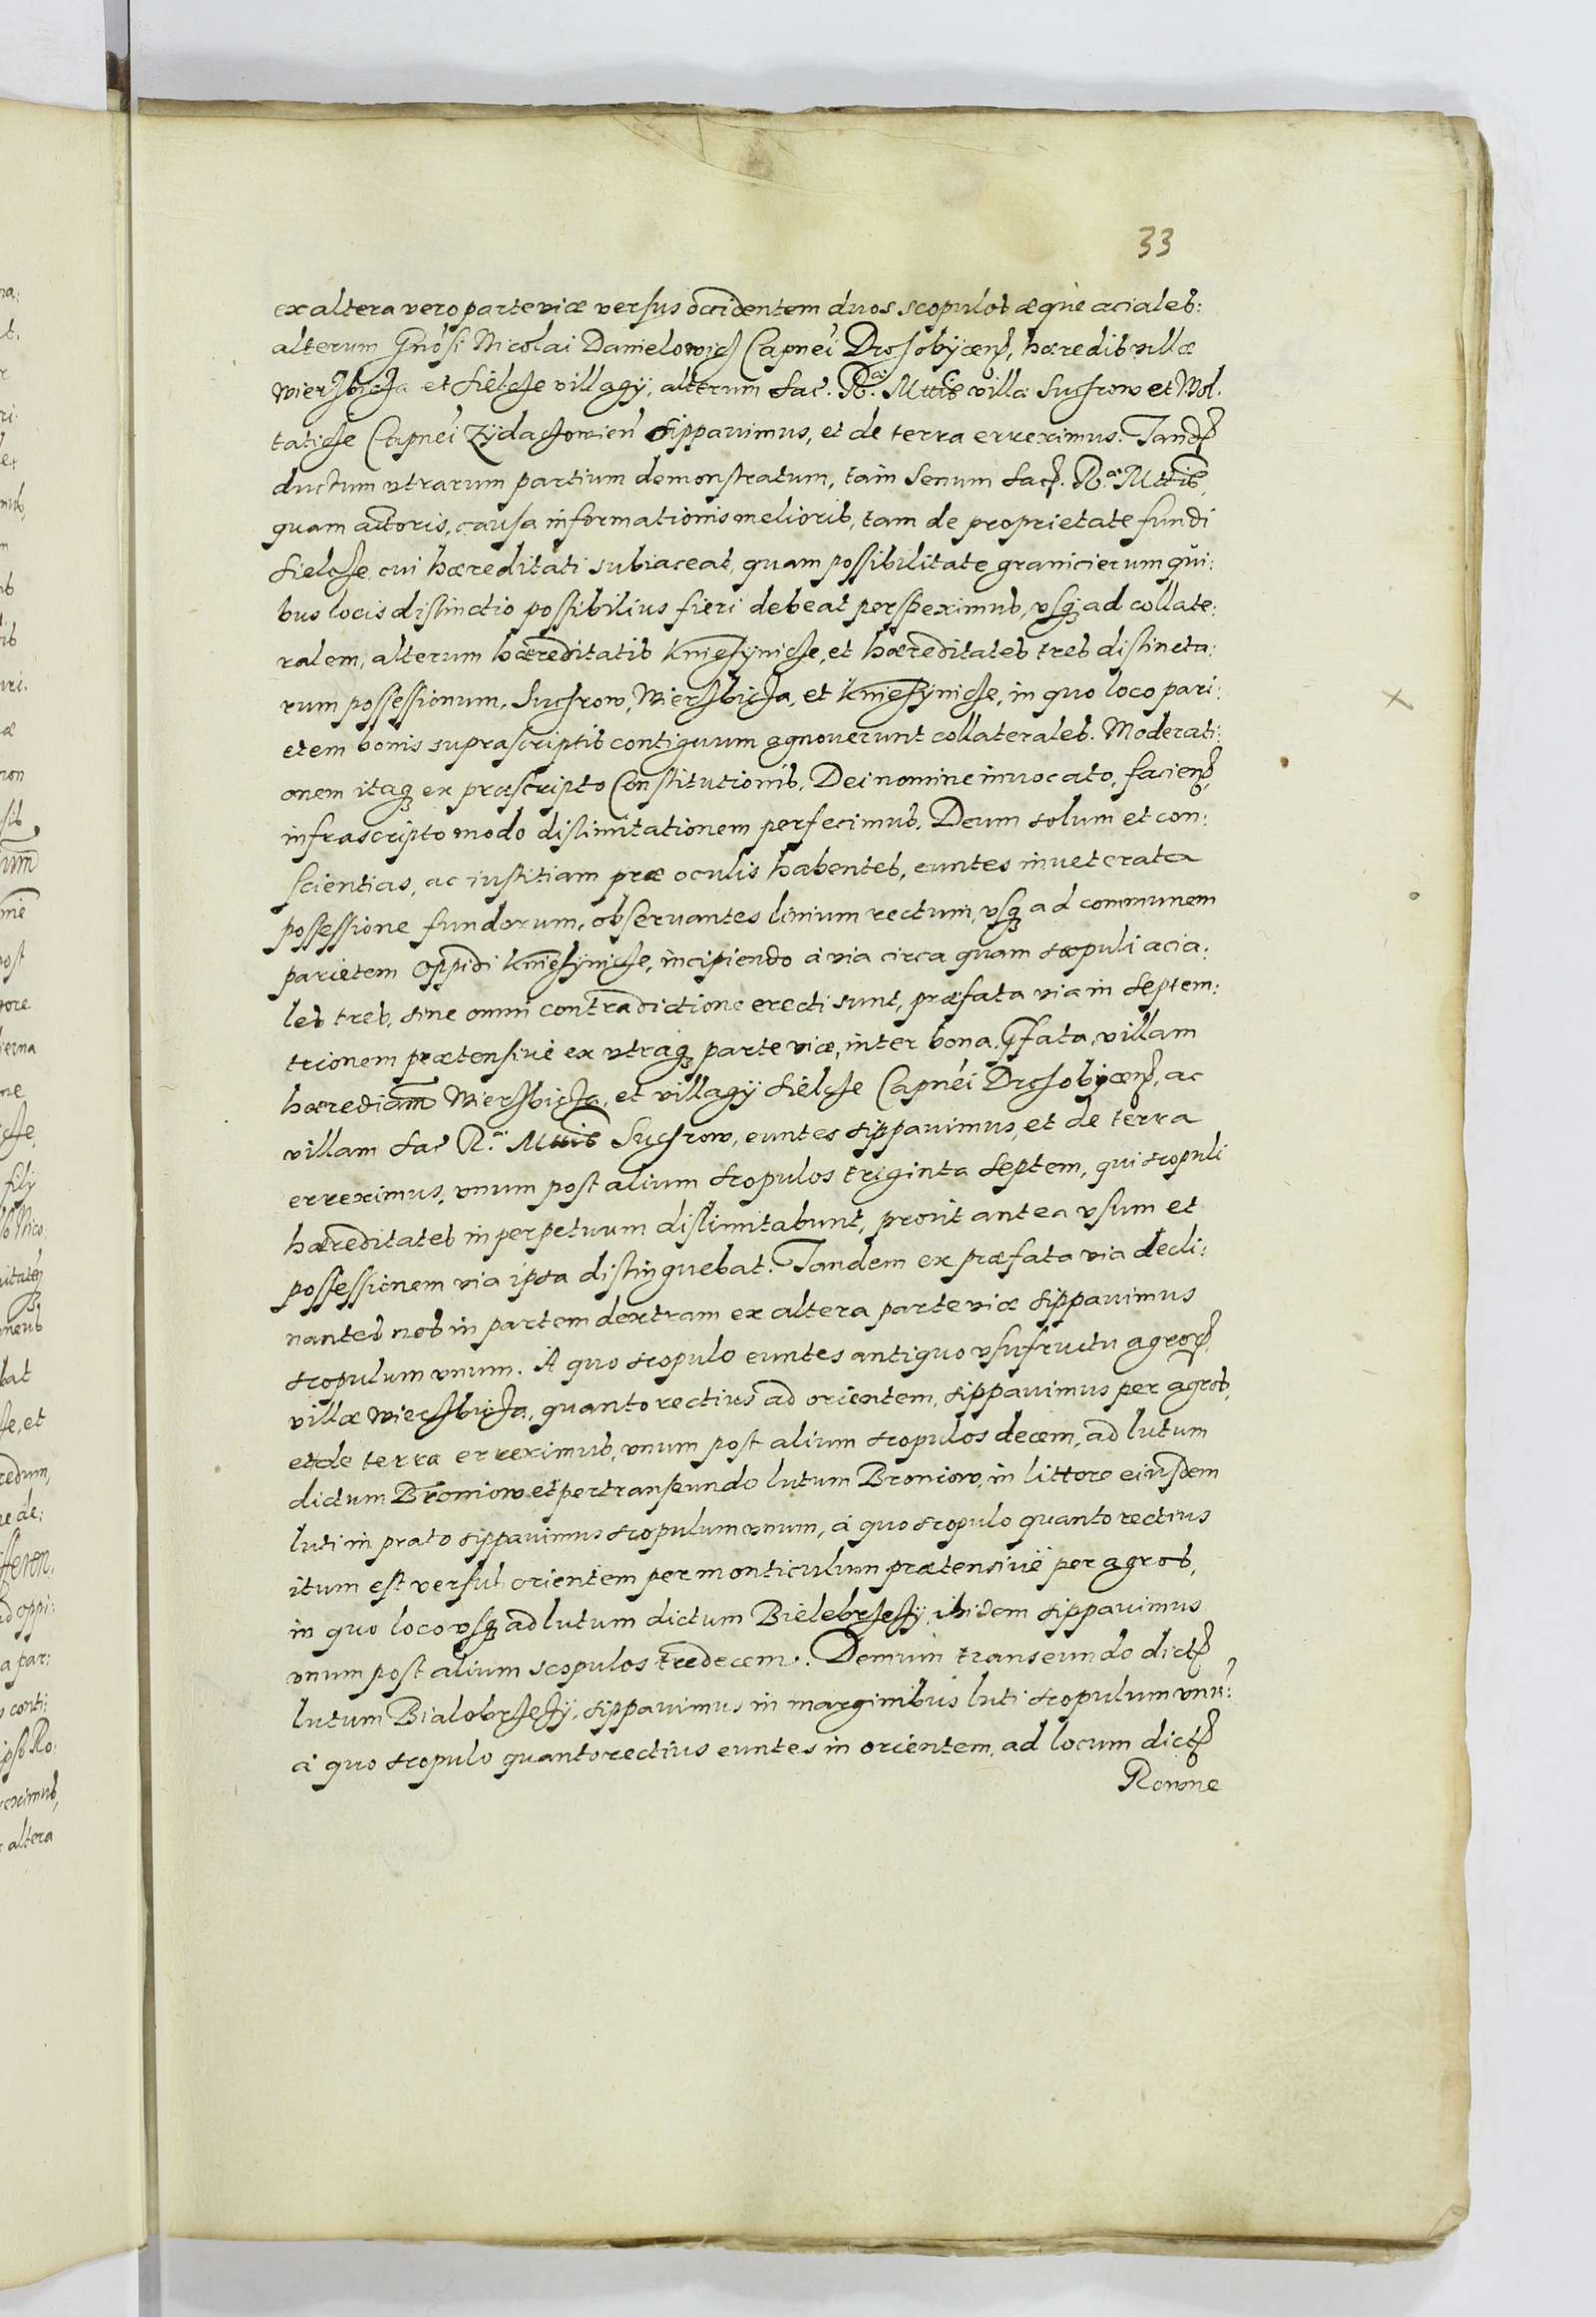 33
ex altera vero parte viæ versus occidentem duos scopulos æque aciales:
alterum Gnosi Nicolai Danielowicz Capnei Drohobÿcen, hæredis villæ
Wierzbicza et Sielcze villagÿ, alterum Sac. R. Mttis villa Suchrow et Mol.
taticze Capnei Zÿdaczowien sippauimus, et de terra erreximus. Tand
ductum vtrarum partium demonstratum, tam Senum Sac. R. Mttis,
quam actoris, causa informationis melioris, tam de proprietate fundi
Sielcze, cui hæreditati subiaceat, quam possibilitate granicierum qui:
bus locis distinctio possibilius fieri debeat perspeximus, vsq ad collate:
ralem, alterum hæreditatis Kniehÿnicze, et hæreditates tres distincta:
rum possessionum, Suchrow, Wierzbicza, et Kniehÿnicze, in quo loco pari:
etem bonis suprascriptis contiguum agnouerunt collaterales. Moderati:
onem itaq ex præscripto Constitutionis, Dei nomine inuocato, facien,
infrascripto modo dislimitationem perfecimus. Deum solum et con:
scientias, ac iustitiam præ oculis habentes, euntes inueterata
possessione fundorum, obseruantes linium rectum, vsq ad communem
parietem oppidi Kniehÿnicze, incipiendo à via circa quam scopuli acia:
les tres, sine omni contradictione erecti sunt, præfata via in Septem:
trionem prætensiuè ex vtraq parte viæ, inter bona pfata, villam
hærediam Wierzbicza, et villagÿ Sielcze Capnei Drohobÿcen, ac
villam Sac R. Mttis Suchrow, euntes sippauimus, et de terra
erreximus, vnum post alium scopulos triginta septem, qui scopuli
hæreditates in perpetuum dislimitabunt, prout antea vsum et
possessionem via ipsa distinguebat. Tandem ex præfata via decli:
nantes nos in partem dextram ex altera parte viæ sippauimus
scopulum vnum. A quo scopulo euntes antiquo vsufructu agror,
villæ Wierzbicza, quanto rectius ad orientem, sippauimus per agros,
et de terra erreximus, vnum post alium scopulos decem, ad lutum
dictum Broniow et pertranseundo lutum Broniow, in littore eiusdem
luti in prato sippauimus scopulum vnum, à quo scopulo quanto rectius
itum est versus orientem per monticulum prætensiuè per agros,
in quo loco vsq ad lutum dictum Bielebrzezÿ, ibidem sippauimus
vnum post alium scopulos tredecem. Demum transeundo dict
lutum Bialobrzezÿ, sippauimus in marginibus luti scopulum vnu:
à quo scopulo quanto rectius euntes in orientem, ad locum dict
Rowne